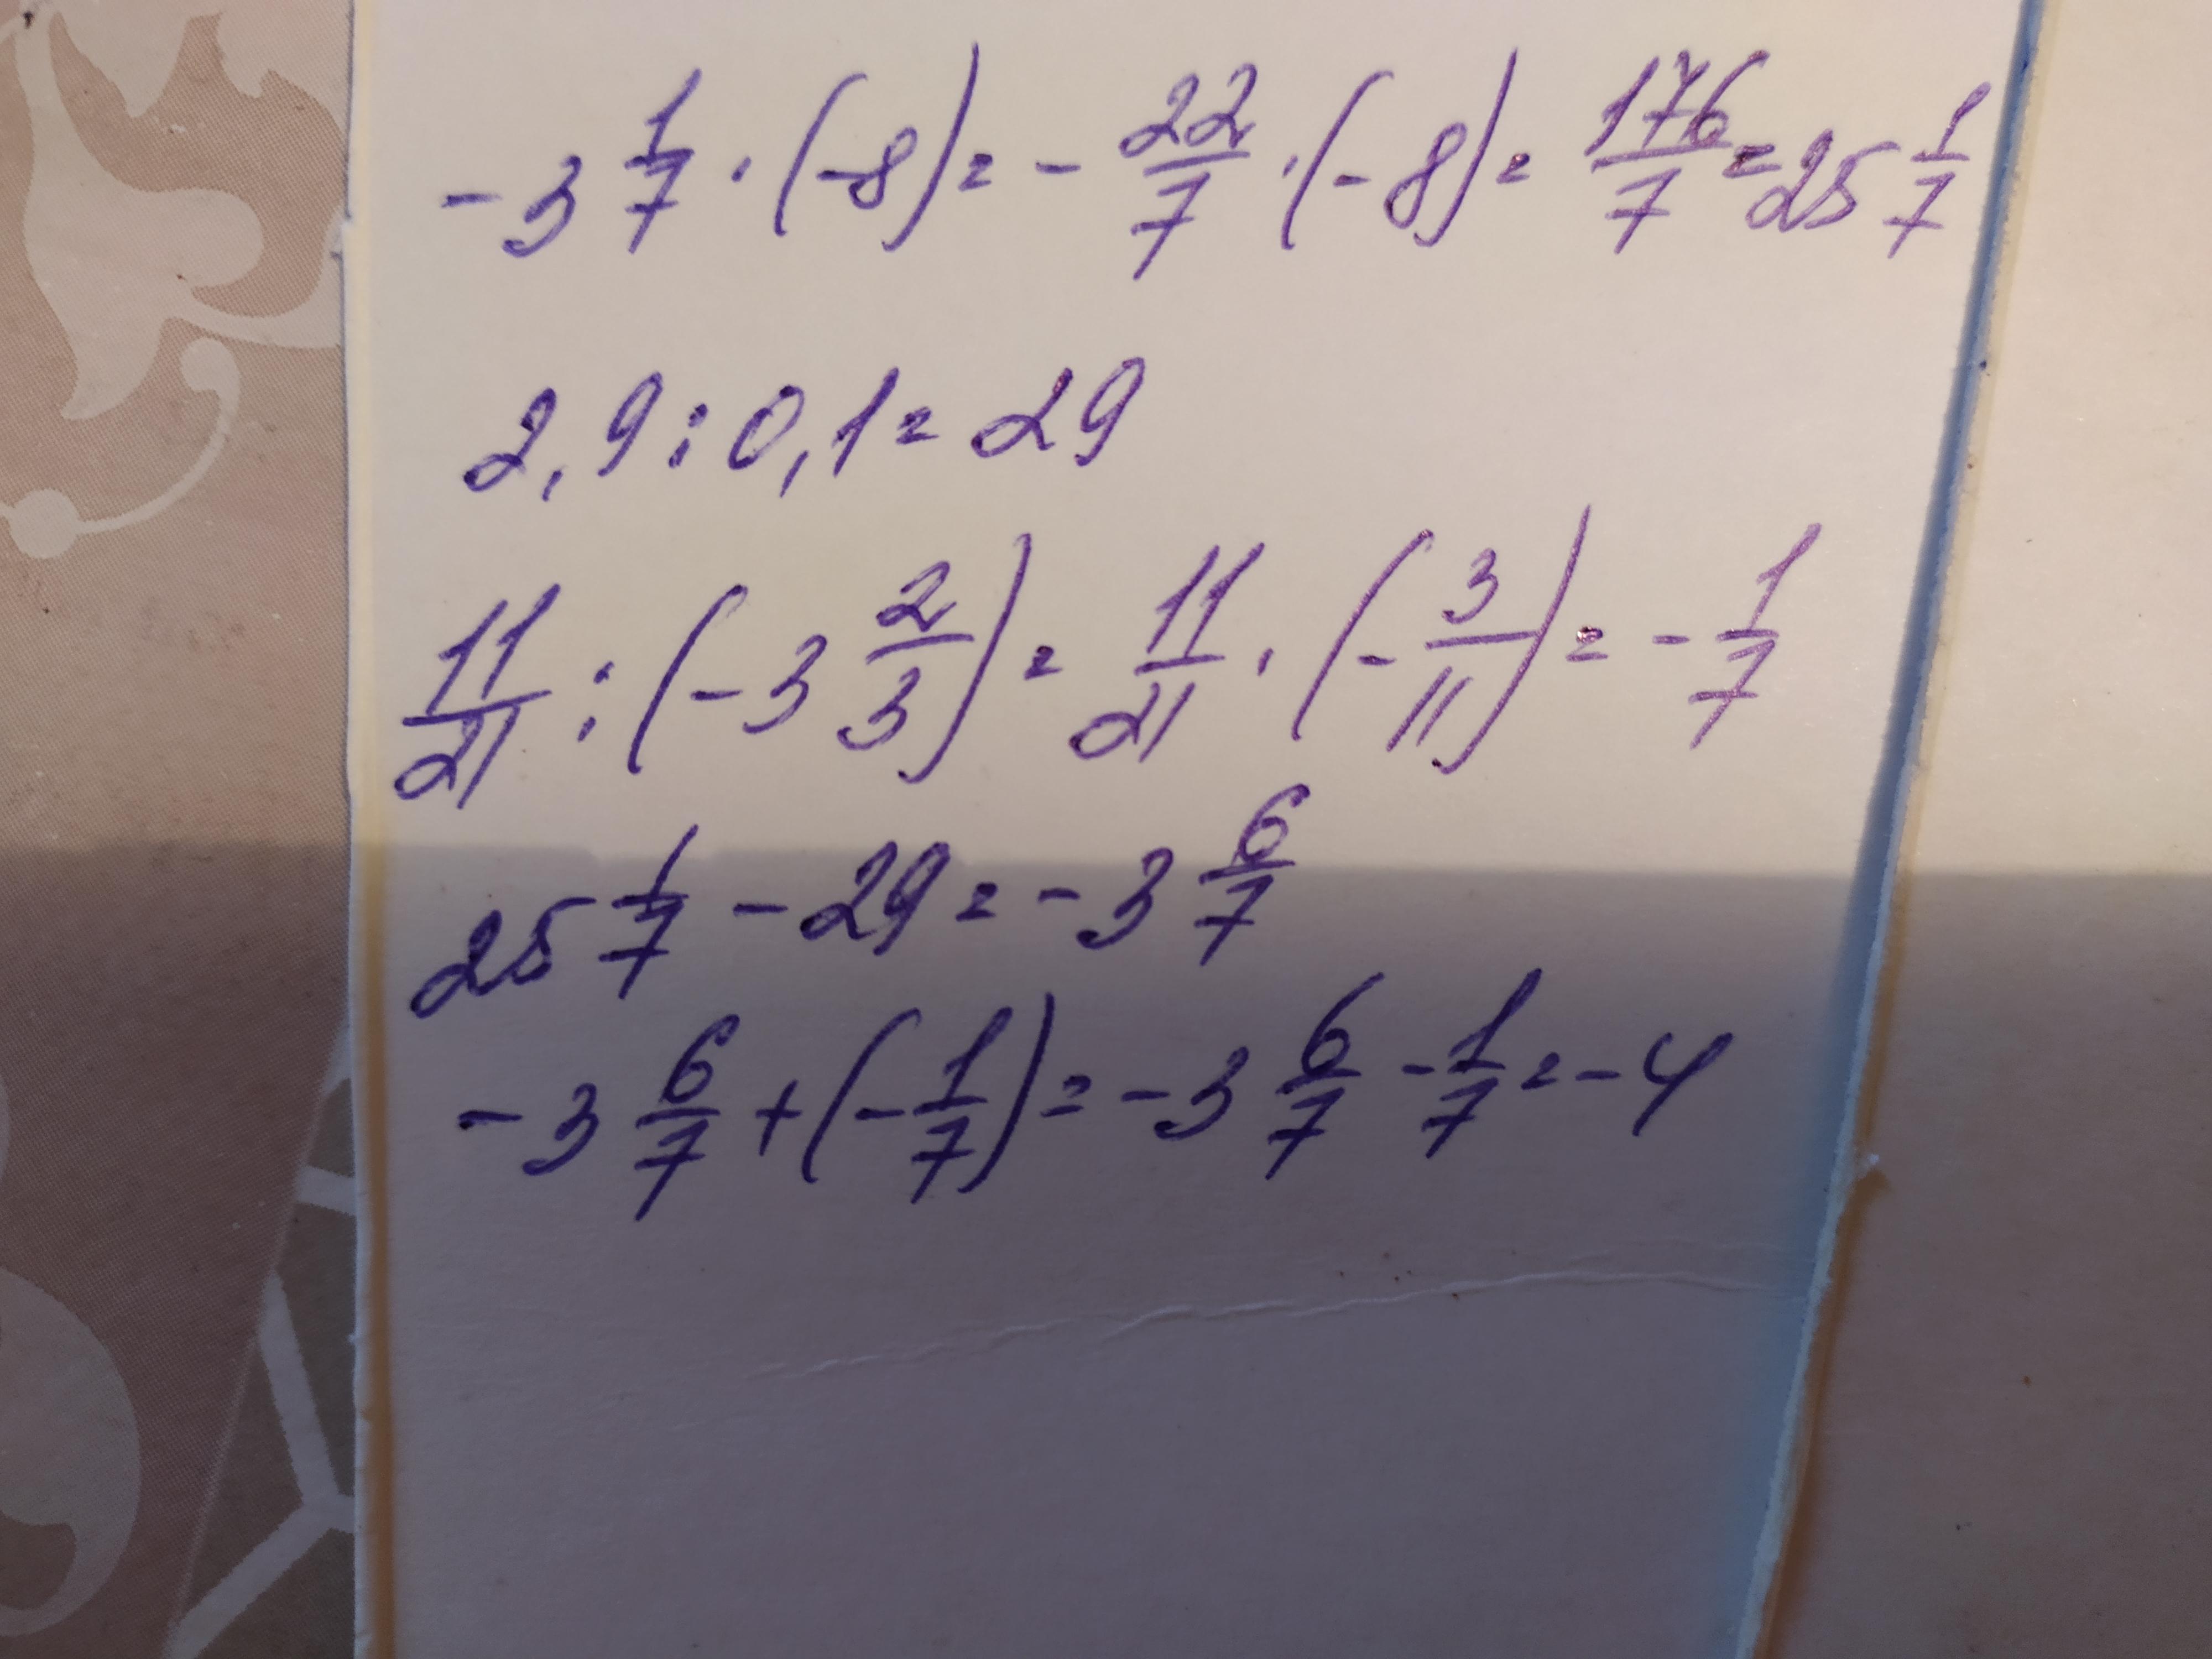 -3 1/7 · (-8) = - 22/7 · (-8) = 176/7 = 25 1/7
2,9 : 0,1 = 29
11/21 : (-3 2/3) = 11/21 · (- 3/11) = - 1/7
25 1/7 - 29 = -3 6/7
-3 6/7 + (- 1/7) = -3 6/7 - 1/7 = -4